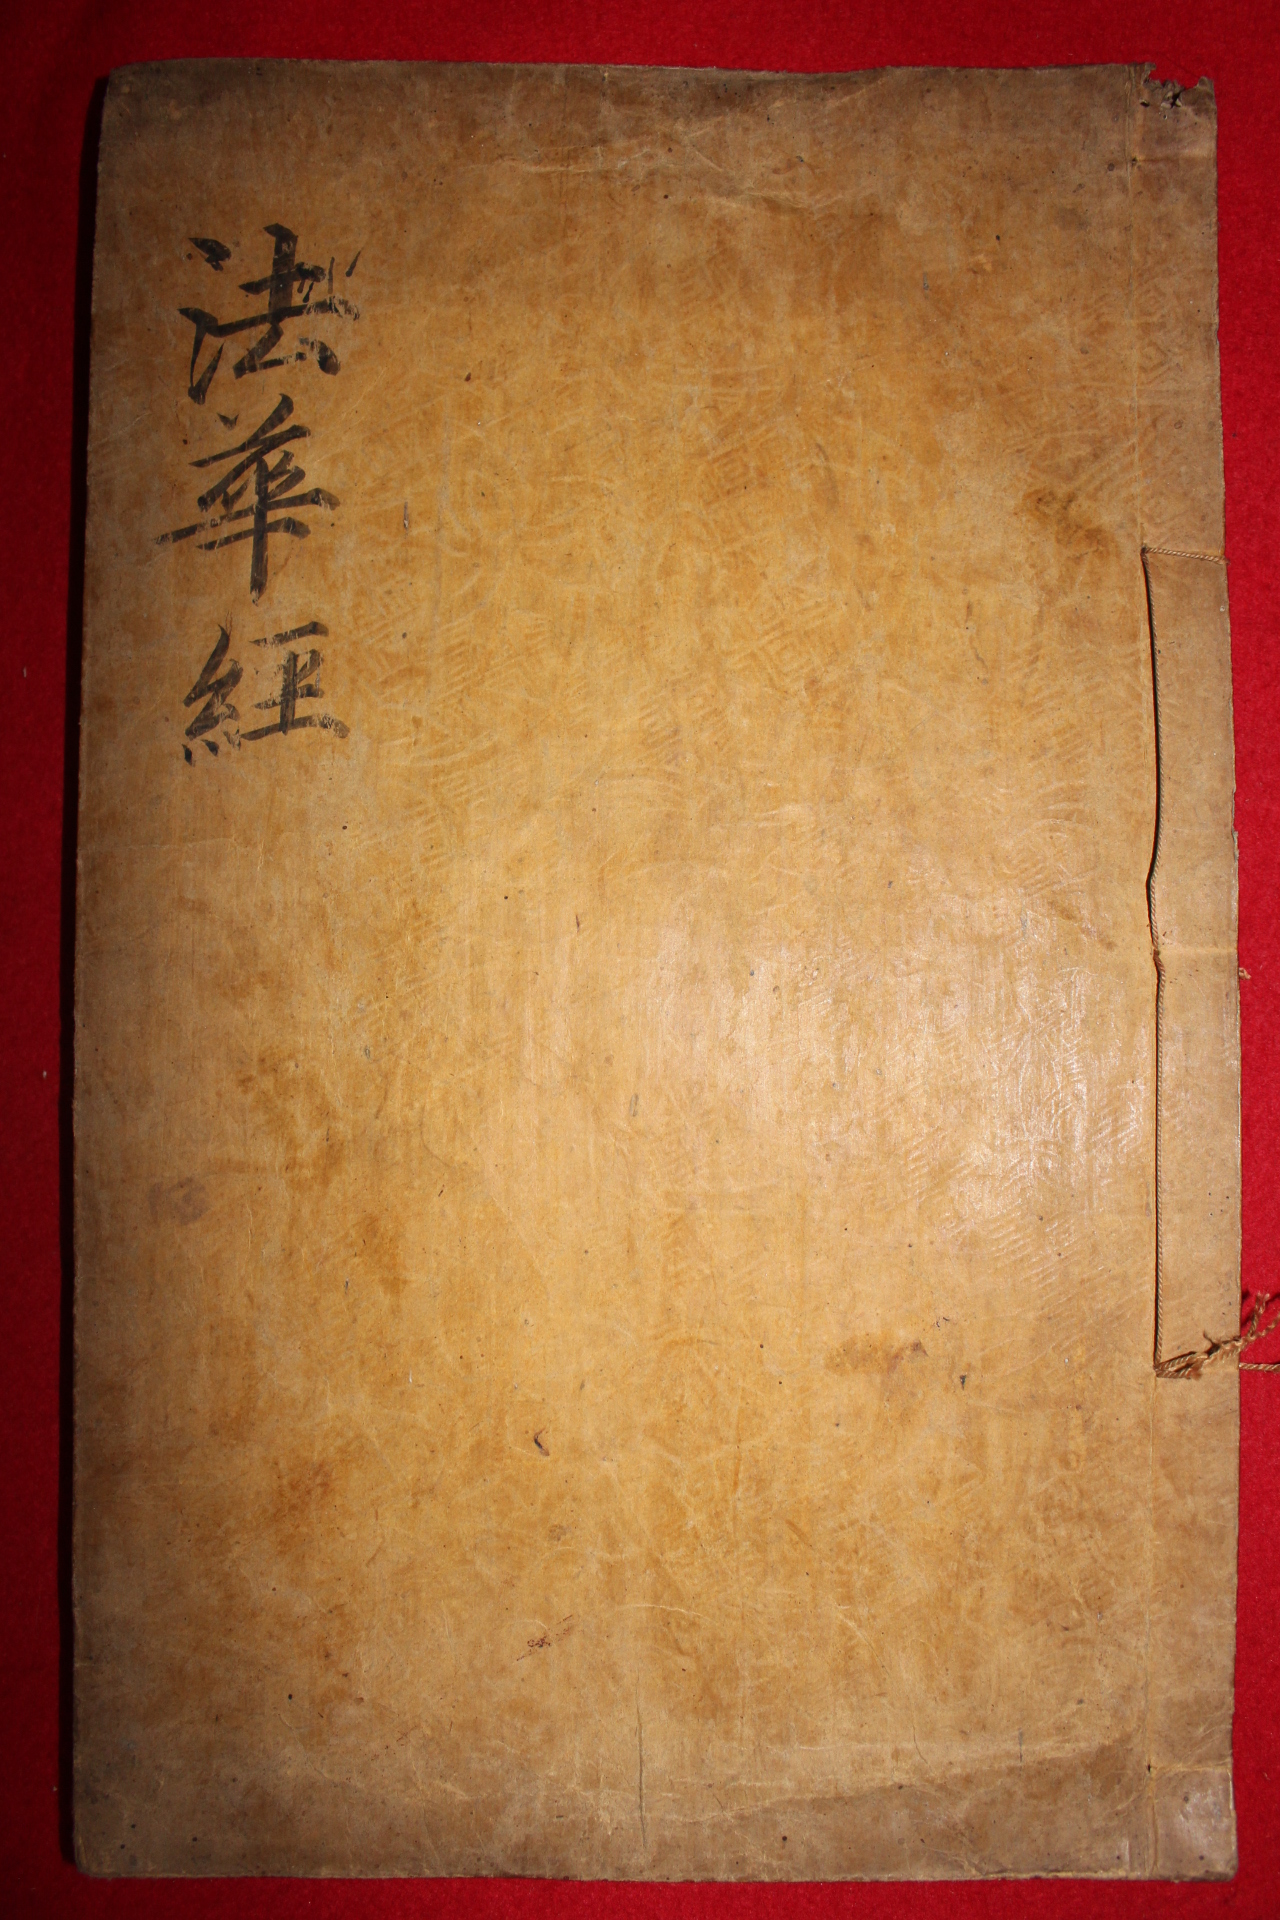 法華經